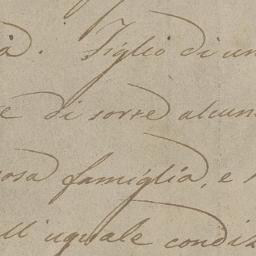 Figlio di un
e di sorte alcun
osa famiglia, e
ll'uguale condiz